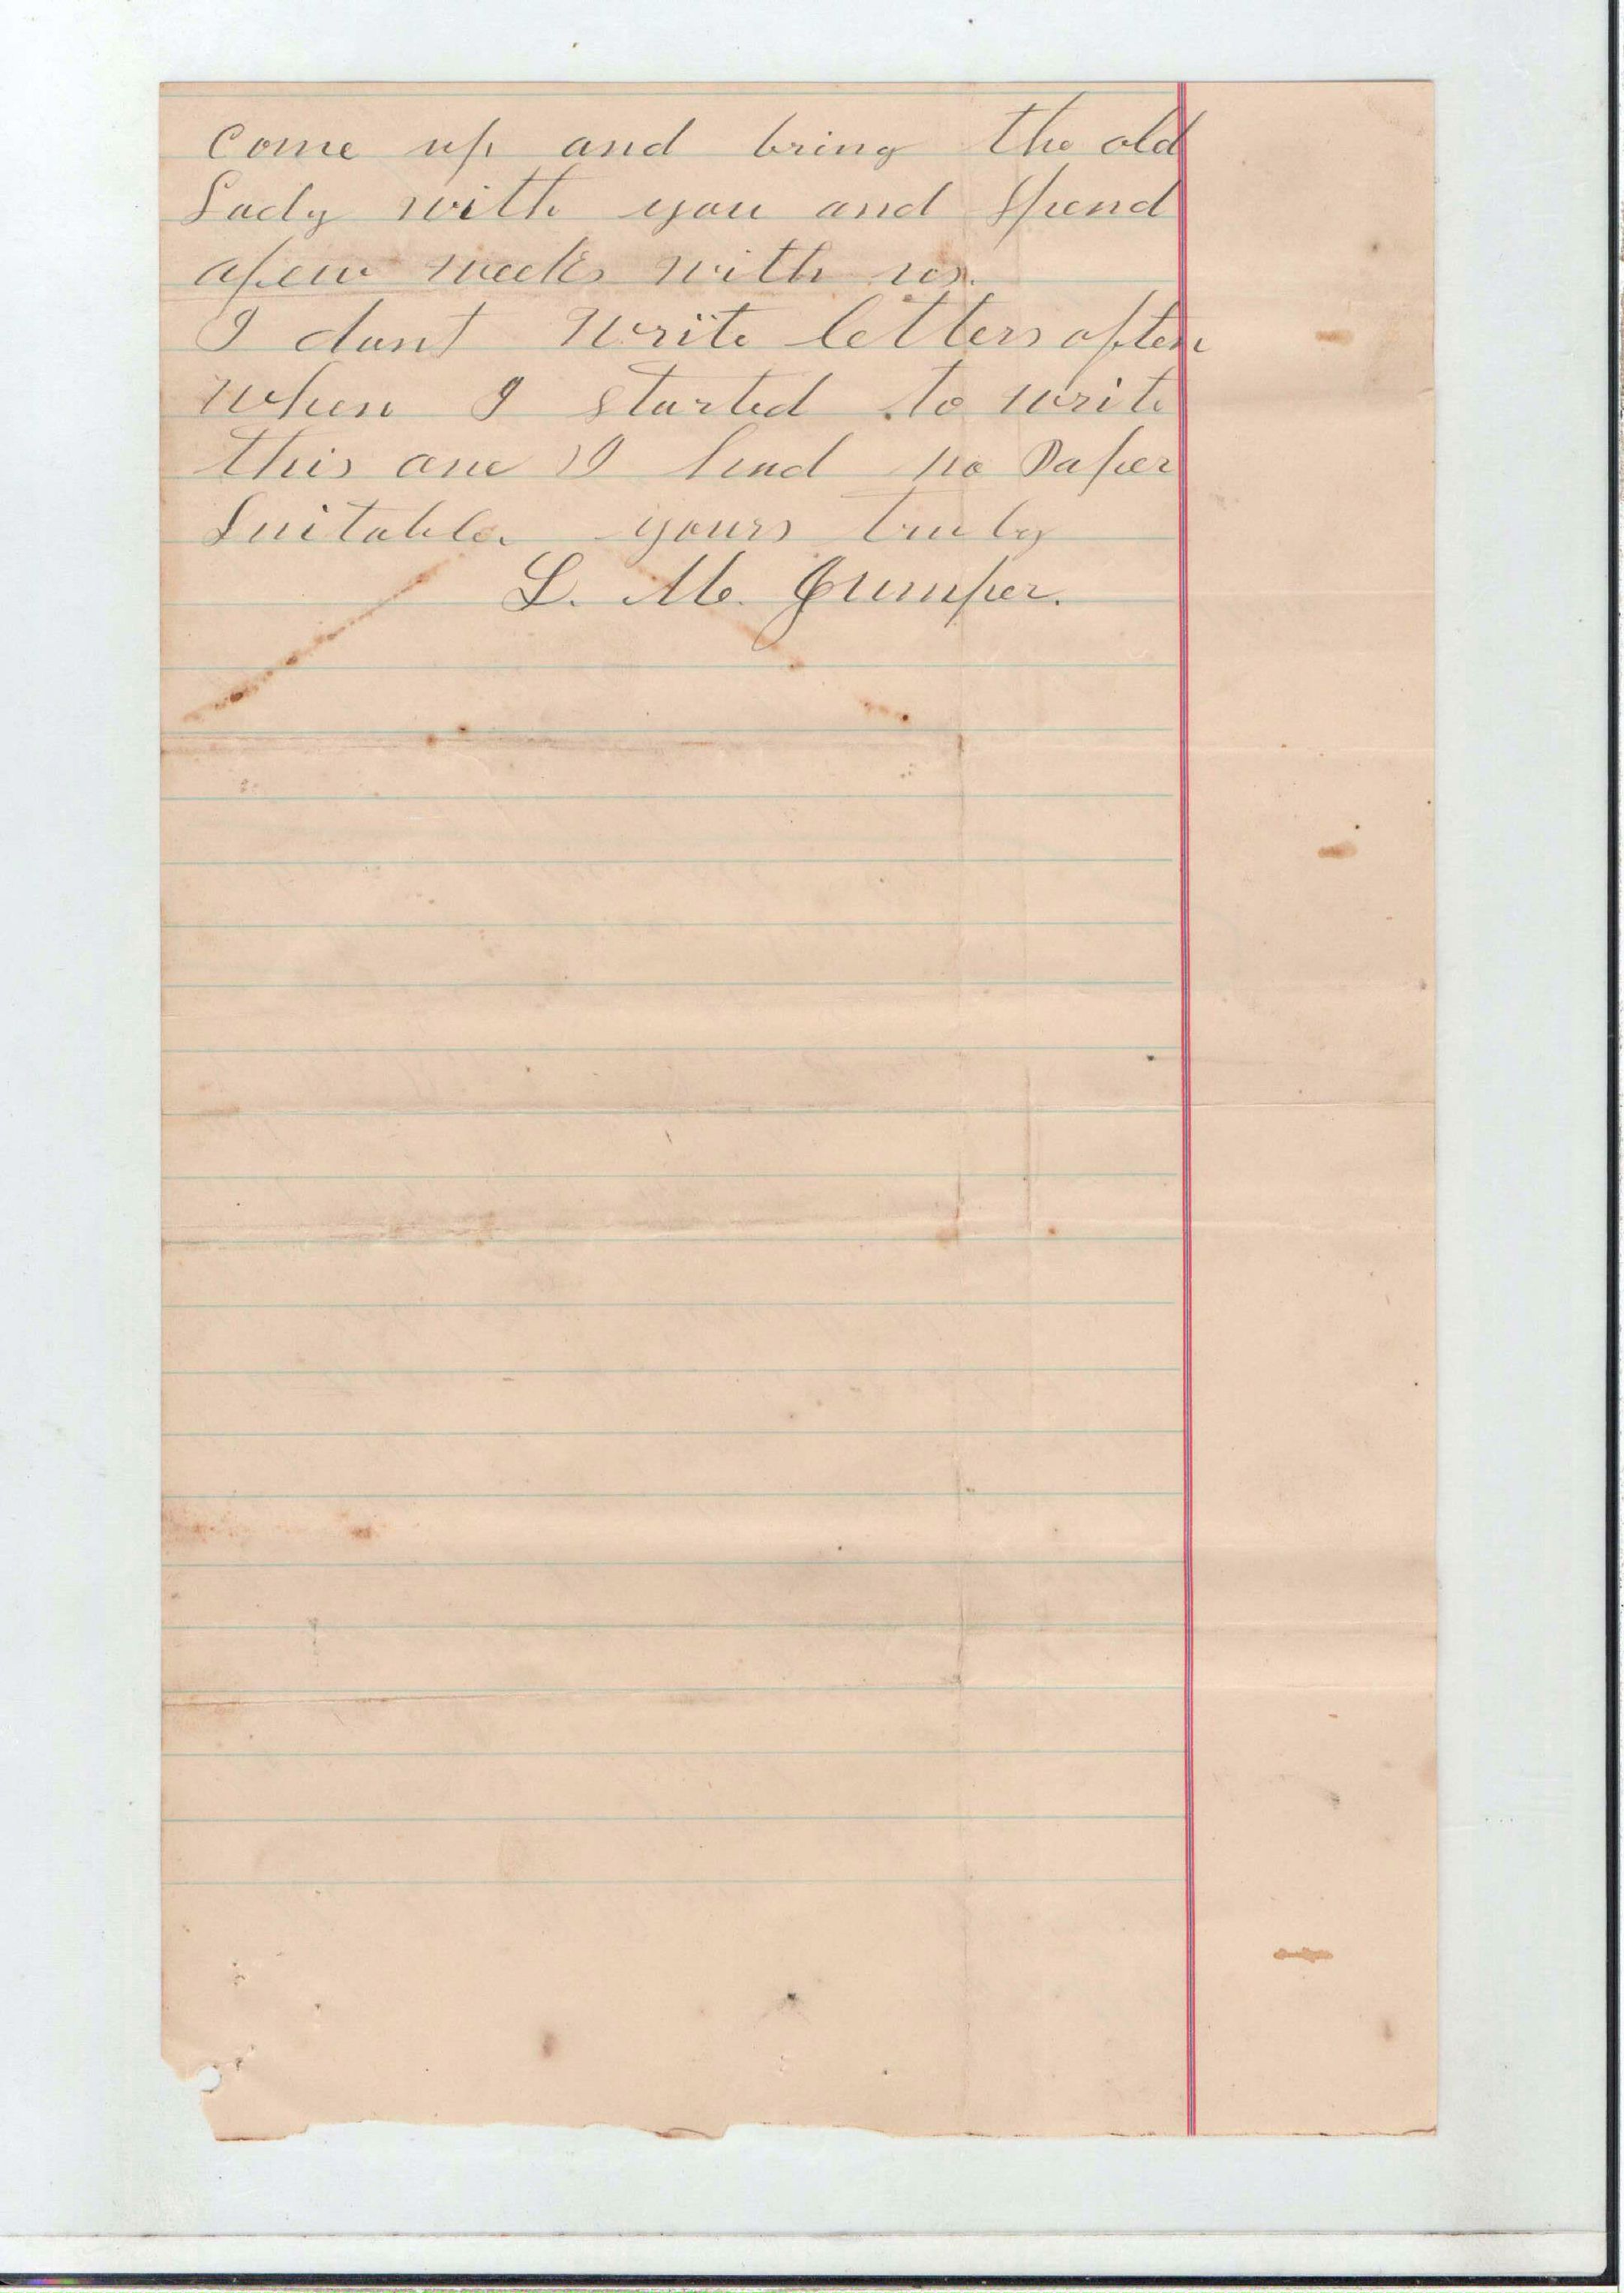 Come up and bring the old
Lady with you and Spend
afew weeks with us.
I dont write letters often
when I started to write
this one I had no Paper
Suitable. yours truly
L. M. Jumper.